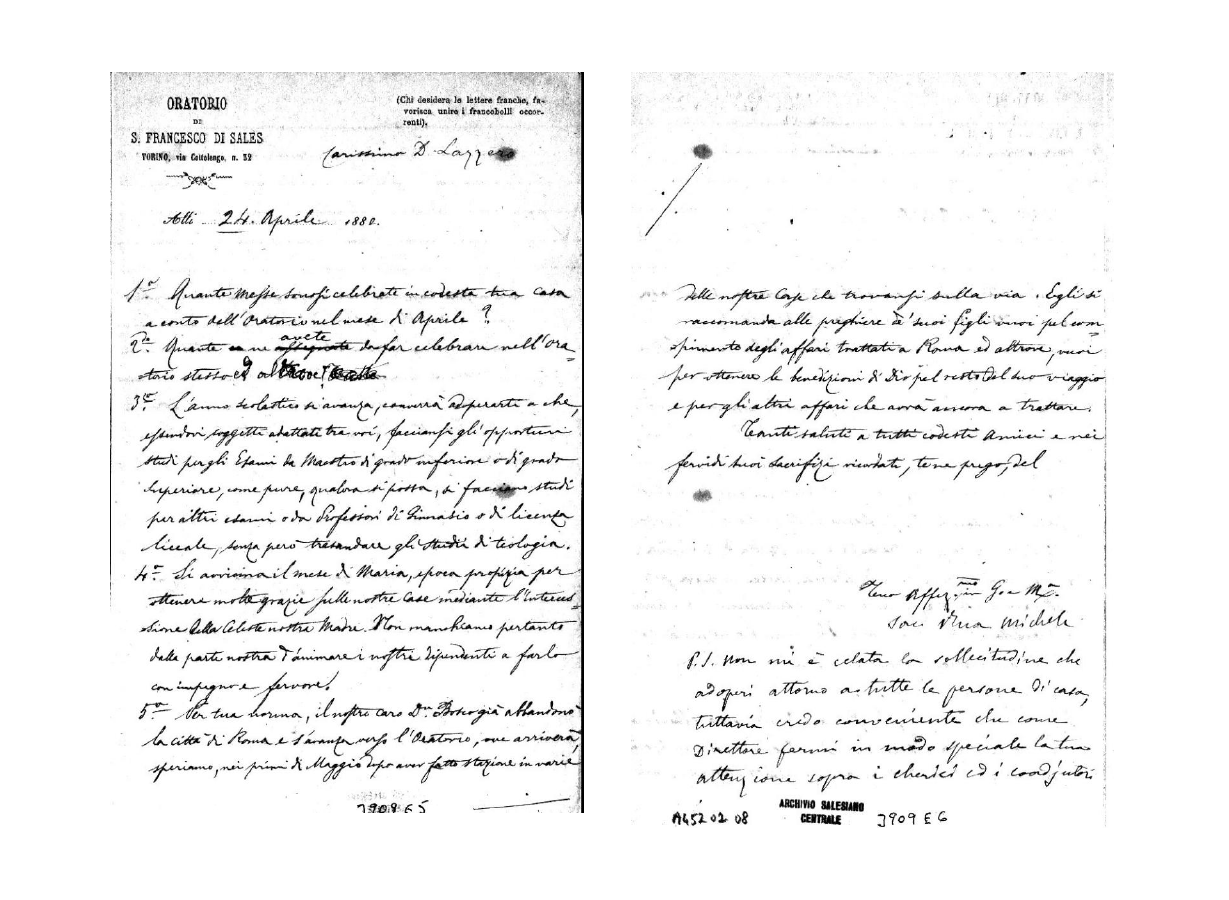 ORATORIO
DI
S. FRANCESCO DI SALES
TORINO, via Cottolengo, n. 32
(Chi desidera le lettere franche, fa-
vorisca unire i francobolli occor-
renti).
Carissimo D. Lazzero
Atti 24. Aprile 1880.
1º. Quante Messe sonosi celebrate in codesta tua casa
a conto dell'Oratorio nel mese di Aprile?
avete
2º. Quante ne da far celebrare nell'Ora=
torio stesso ed
3º. L'anno scolastico si avanza, converrà adoperarti a che,
essendovi soggetti adattati tra voi, facciansi gli opportuni
studi per gli Esami da Maestro di grado inferiore o di grado
Superiore, come pure, qualora si possa, si facciano studi
per altri esami o da Professori di Ginnasio o di licenza
liceale, senza però trasandare gli studii di teologia.
4º. Si avvicina il mese di Maria, epoca propizia per
ottenere molte grazie sulle nostre Case mediante l'Interces=
sione della Celeste nostra Madre. Non manchiamo pertanto
dalla parte nostra d'animare i nostri dipendenti a farlo
con impegno e fervore!
5º. Per tua norma, il nostro caro Dn. Bosco già abbandonò
la città di Roma e s'avanza verso l'Oratorio, ove arriverà,
speriamo, nei primi di Maggio dopo aver fatto stazione in varie
3909 E5
delle nostre Case che trovansi sulla via. Egli si
raccomanda alle preghiere de' suoi figli vuoi pel com=
pimento degli affari trattati a Roma ed altrove, vuoi
per ottenere le benedizioni di Dio pel resto del suo viaggio
e per gli altri affari che avrà ancora a trattare.
Tanti saluti a tutti codesti Amici e nei
fervidi tuoi Sacrifizi ricordati, te ne prego, del
Tuo Affez.mo in G. e M.
Sac. Rua Michele
P.S. Non mi è celata la sollecitudine che
adoperi attorno a tutte le persone di casa,
tuttavia credo conveniente che come
Direttore fermi in modo speciale la tua
attenzione sopra i cherici ed i coadjutori
A452 02 08
ARCHIVIO SALESIANO
CENTRALE
3909 E6